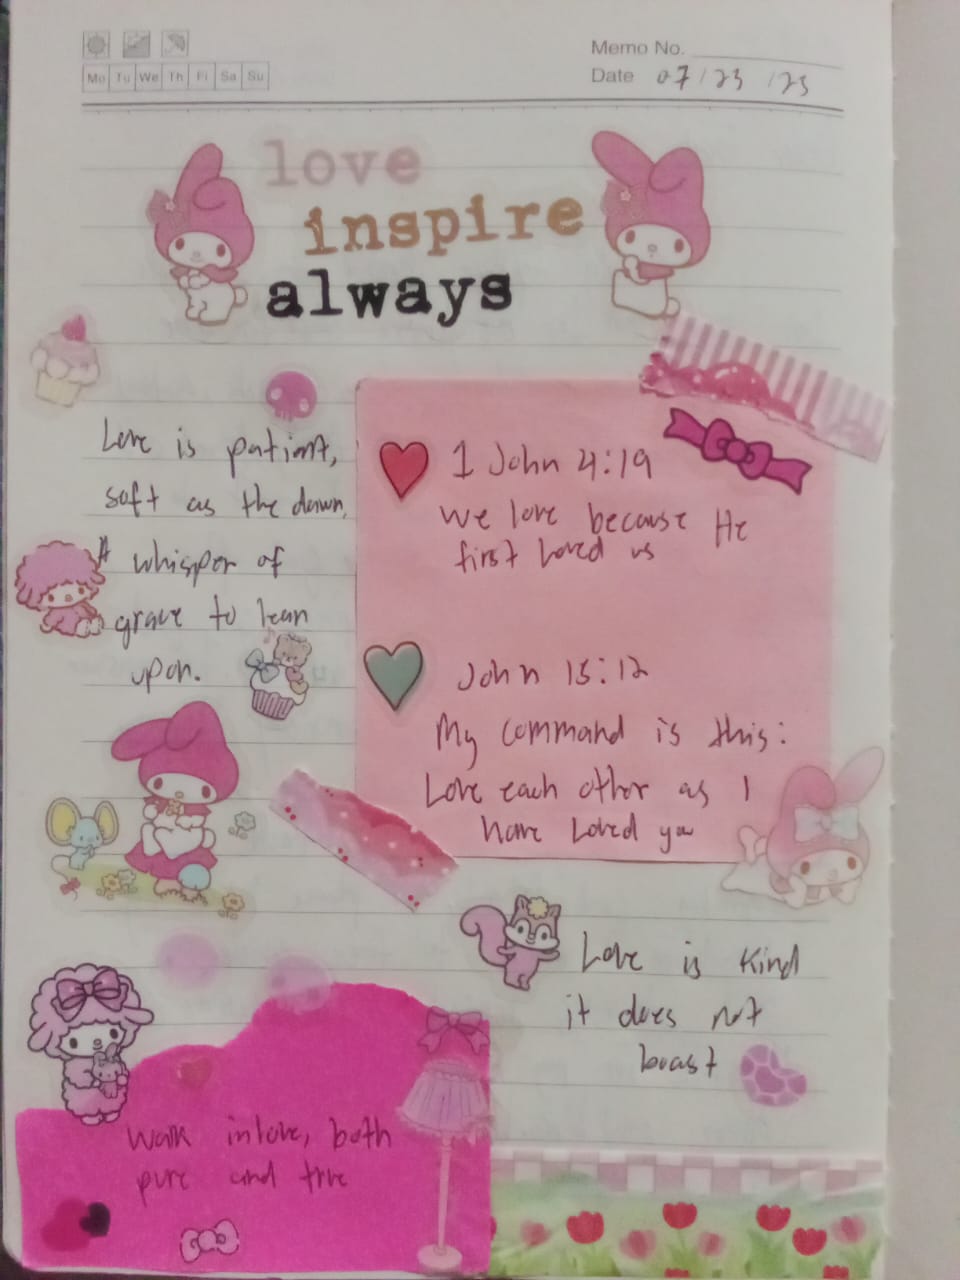 Mo Tu We Th Fi Sa Su
Memo No.
Date 07/23/23
love
inspire
always
Love is patient,
soft as the dawn,
A whisper of
grace to lean
upon.
1 John 4:19
We love because He
first Loved us
John 15:12
My command is this:
Love each other as I
have Loved you
Love is kind
it does not
boast
Walk in love, both
pure and true